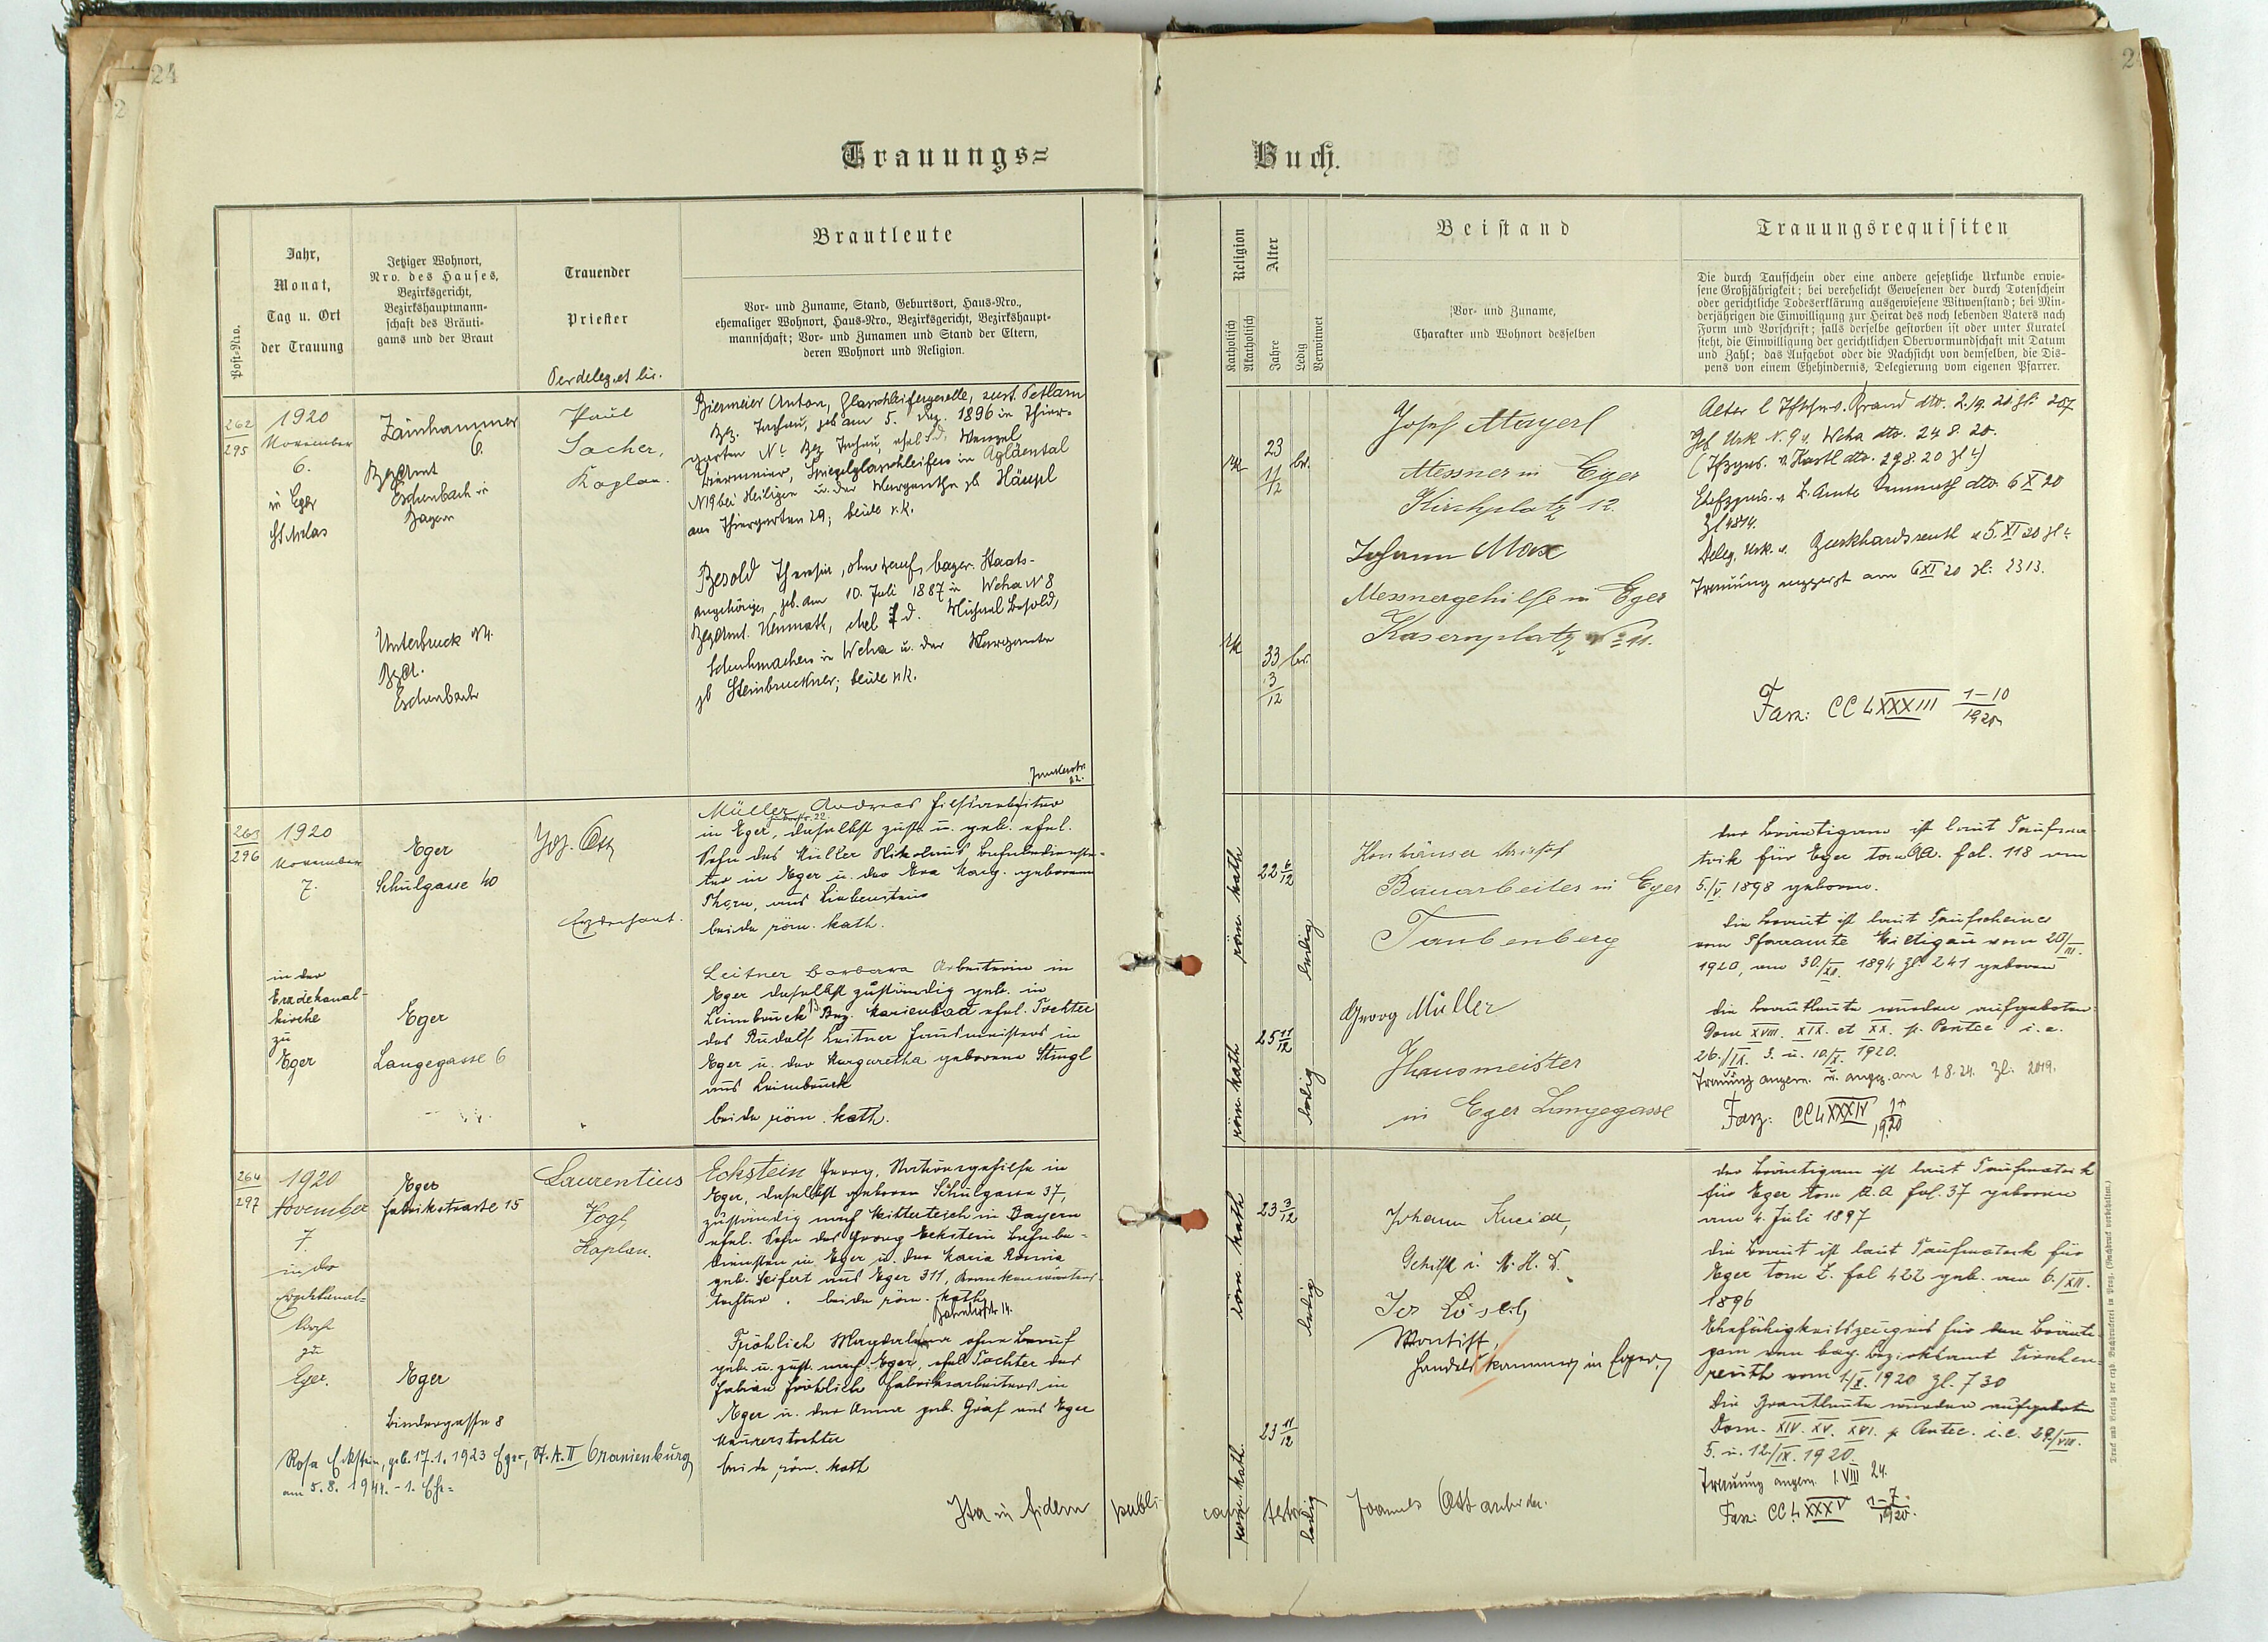 24
2
Trauungs=
Buch.
Post-Nro.
Jahr,
Monat,
Tag u. Ort
der Trauung
Jetziger Wohnort,
Nro. des Hauses,
Bezirksgericht,
Bezirkshauptmann-
schaft des Bräuti-
gams und der Braut
Trauender
Priester
Brautleute
Vor- und Zuname, Stand, Geburtsort, Haus-Nro.,
ehemaliger Wohnort, Haus-Nro., Bezirksgericht, Bezirkshaupt-
mannschaft; Vor- und Zunamen und Stand der Eltern,
deren Wohnort und Religion.
Religion
Katholisch
Akatholisch
Alter
Jahre
Ledig
Verwitwet
Beistand
Vor- und Zuname,
Charakter und Wohnort desselben
Trauungsrequisiten
Die durch Taufschein oder eine andere gesetzliche Urkunde erwie-
sene Großjährigkeit; bei verehelicht Gewesenen der durch Totenschein
oder gerichtliche Todeserklärung ausgewiesene Witwenstand; bei Min-
derjährigen die Einwilligung zur Heirat des noch lebenden Vaters nach
Form und Vorschrift; falls derselbe gestorben ist oder unter Kuratel
steht, die Einwilligung der gerichtlichen Obervormundschaft mit Datum
und Zahl; das Aufgebot oder die Nachsicht von demselben, die Dis-
pens von einem Ehehindernis, Delegierung vom eigenen Pfarrer.
262
295
1920
November
6.
in Eger
St Niklas
Zainhammer
6.
Bezamt
Eschenbach in
Bayern
Unterbruck
Eschenbach
Per deleg. et lic.
Paul
Sacher,
Kaplan.
Biermeier Anton, Glasschleifergeselle, zust.
Bez. Tachau, geb am 5. 1896 in Thier-
garten Bez Tachau, ehel S. d. Wenzel
Biermeier, Spiegelglasschleifers in
N19 bei Heiligen u. der Margaretha gb Häupl
aus Thiergarten 29; beide r.k.
Besold Theresia, ohne Beruf, bayer. Staats-
angehörige, geb. am 10. Juli 1887 in Weha N 8
Bezamt. Kemnath, ehel T d. Michael Besold,
Schuhmachers in Weha u. der Margareta
gb Steinbruckner; beide r.k.
rk
23
11
12
rk
33
3
12
Josef Mayerl
Messner in Eger
Kirchplatz 12.
Johann Max
Messnergehilfe in Eger
Kasernplatz No 11.
Brand dto. 2./9. 20. Zl: 207
Geb Urk N. 9 v. Weha dto. 24 8. 20.
v. Kastl dto. 29.8.20
Kemnath dto. 6 X 20
Zl 4814.
Deleg. Urk. v. Burkhardsreuth v 5. XI 20
Trauung angezeigt am 6 XI 20 Zl: 2313.
Fasz: CCLXXXIII 1-10
1920
263
296
1920
November
7.
in der
Erzdekanal-
kirche
zu
Eger
Eger
Schulgasse 40
Eger
Langegasse 6
Joh. Ott
Erzdechant.
22.
Müller Andreas Hilfsarbeiter
in Eger, daselbst zust. u. geb. ehel.
Sohn des Müller Nikolaus Bahnbedienste-
ter in Eger u. der Eva Marg. geborene
Thorn, aus Liebenstein
beide röm. kath.
Leitner Barbara Arbeiterin in
Eger daselbst zuständig geb. in
Leimbruck Bez. Marienbad ehel. Tochter
des Rudolf Leitner Hausmeisters in
Eger u. der Margaretha geborene Stingl
aus Leimbruck
beide röm. kath.
röm. kath
22 6/12
ledig
röm. kath
25 11/12
ledig
Bauarbeiter in Eger
Taubenberg
Georg Müller
Hausmeister
in Eger Langegasse
der Bräutigam ist laut Taufma-
trik für Eger tom AA. fol. 118 am
5./V. 1898 geboren.
die Braut ist laut Taufscheines
vom Pfarramte vom 20/III.
1920, am 30./XI. 1894 Zl. 241 geboren
die Brautleute wurden aufgeboten
Dom XVIII. XIX. et XX. p. Pentec i. e.
26./IX. 3. u. 10./X. 1920.
Trauung angem. u. angez. am 1.8.24. Zl. 2019.
Fasz: CCLXXXIV
1920
264
297
1920
November
7.
in der
Erzdekanal=
Kirche
zu
Eger.
Eger
Fabrikstrasse 15
Eger
Bindergasse 8
Laurentius
Vogl,
Kaplan.
Eckstein Georg, Stationsgehilfe in
Eger, daselbst geboren Schulgasse 37,
zuständig nach Mitterteich in Bayern
ehel. Sohn des Georg Eckstein Bahnbe-
diensten in Eger u. der Maria Rosina
geb. Seifert aus Eger 311, Krankenwärters-
tochter. beide röm. kath.
Bahnhofstr 14.
Fröhlich Magdalena ohne Beruf
geb. u. zust. nach Eger, ehel. Tochter des
Fabian Fröhlich Fabriksarbeiters in
Eger u. der Anna geb. Graf aus Eger
Maurerstochter
beide röm. kath
röm. kath
23 3/12
ledig
röm. kath.
23 11/12
ledig
Johann
Jos Lösch
Handelskammer in Eger
der Bräutigam ist laut Taufmatrik
für Eger tom A.A fol. 37 geboren
am 4. Juli 1897
die Braut ist laut Taufmatrik für
Eger tom Z. fol 422 geb. am 6./XII.
1896
Ehefähigkeitszeugnis für den Bräuti-
gam von bay. Bezirksamt Tirschen-
reuth vom 1./X. 1920 Zl. 730
Die Brautleute wurden aufgeboten
Dom. XIV. XV. XVI. p. Pentec. i.e. 29/VIII.
5. u. 12./IX. 1920.
Trauung angem. 1. VIII 24.
Fasz: CCLXXXV 1-7
1920.
Rosa Eckstein, geb. 17.1.1923 Eger, St. A. II Oranienburg
am 5.8. 1944. - 1. Ehe=
Ita in fidem publi
cam testor Joannes Ott archidec.
Druck und Verlag der erzb. Buchdruckerei in Prag. (Nachdruck vorbehalten.)